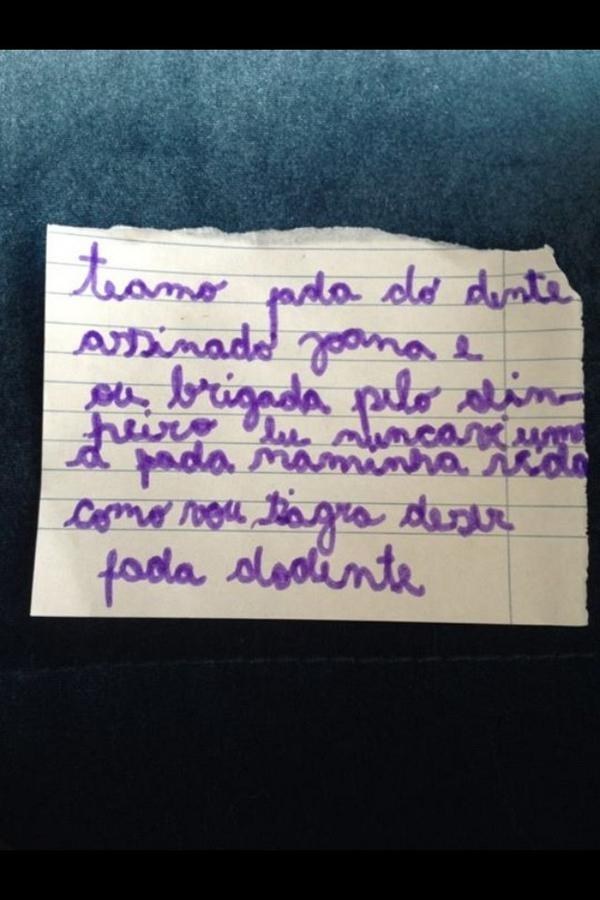 teamo fada do dente
assinado joana e
ou brigada pelo din-
heiro eu nunca vi uma
a fada naminha vida
como vou tiagra desir
fada dodente